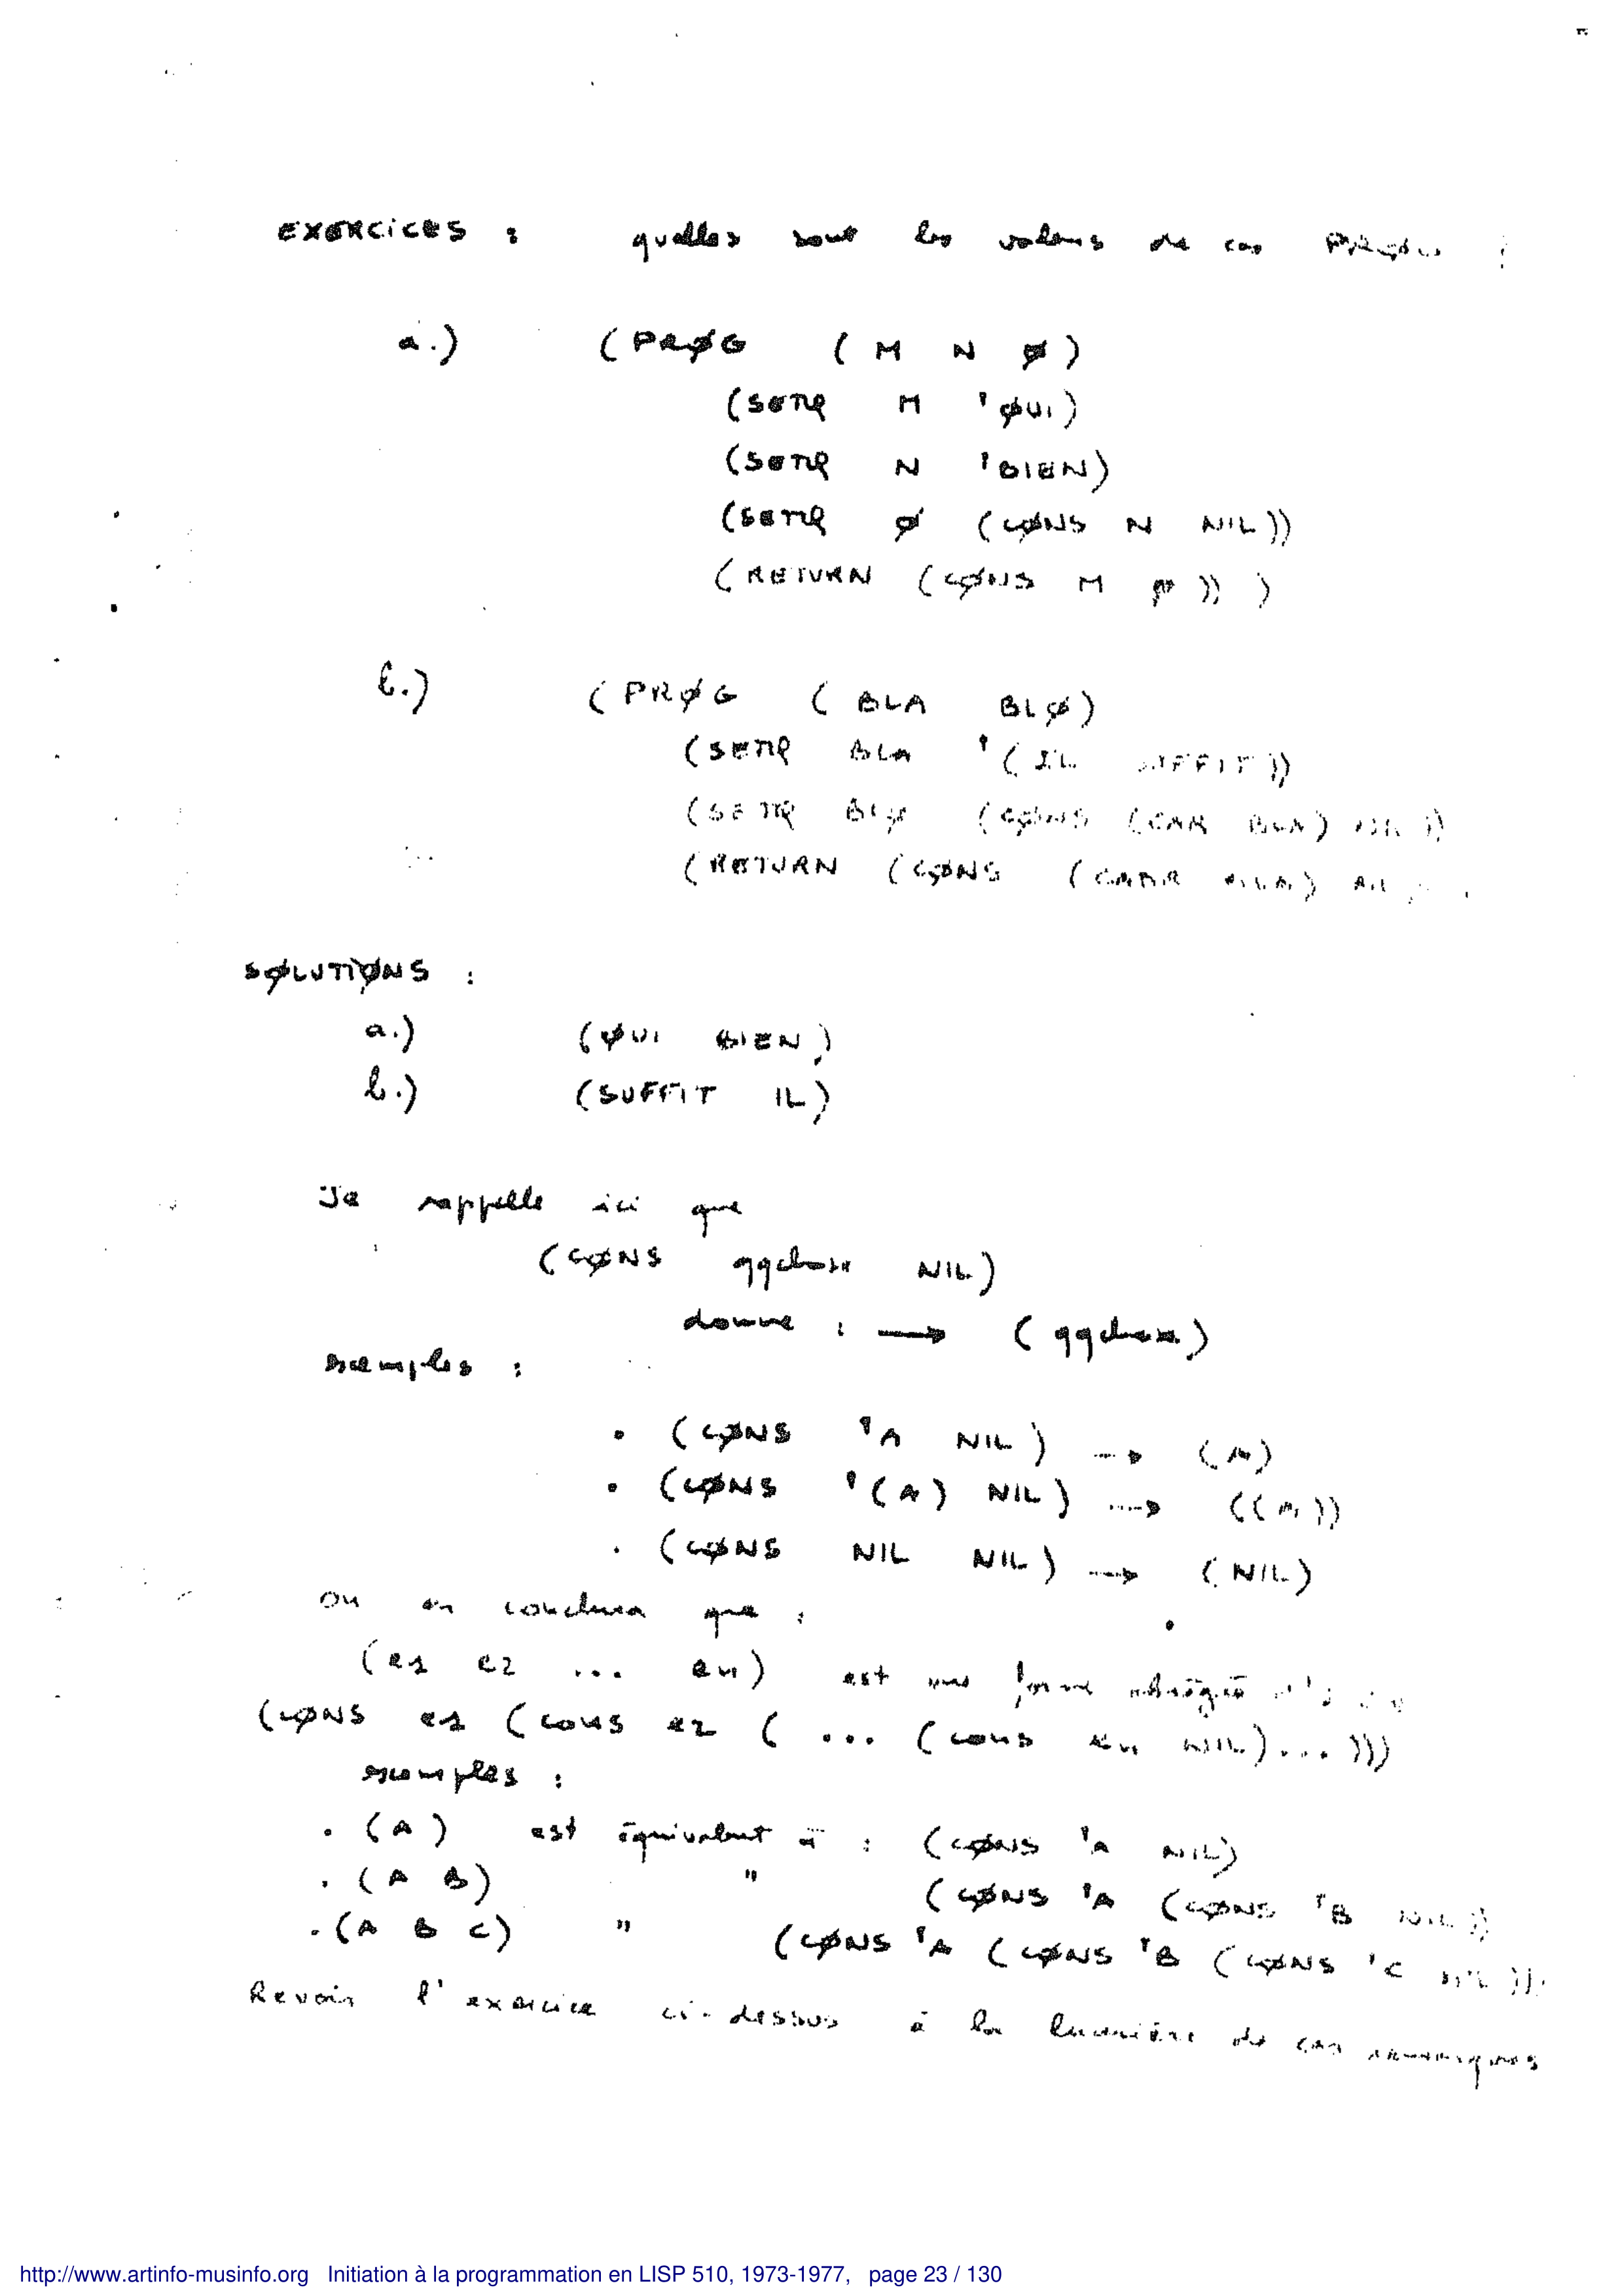 EXERCICES : quelles sont les valeurs de ces PRØGs :
a.) (PRØG ( M N Ø)
(SETQ M 'ØUI)
(SETQ N 'BIEN)
(SETQ Ø (CØNS N NIL))
(RETURN (CØNS M Ø)) )
b.) (PRØG ( BLA BLØ)
(SETQ BLA '( IL SUFFIT))
(SETQ BLØ (CØNS (CAR BLA) NIL))
(RETURN (CØNS (CADR
SØLUTIØNS :
a.) (ØUI BIEN)
b.) (SUFFIT IL)
Je rappelle ici que
(CØNS qqchose NIL)
donne : → ( qqchose)
exemples :
• (CØNS 'A NIL) → (A)
• (CØNS '(A) NIL) → ((A))
. (CØNS NIL NIL) → (NIL)
On en conclura que :
(e1 e2 ... en) est une forme abrégée
(CØNS e1 (cons e2 ( ... (cons en NIL)...)))
exemples :
. (A) est équivalent à : (CØNS 'A NIL)
. (A B) " (CØNS 'A (CØNS 'B NIL))
. (A B C) " (CØNS 'A (CØNS 'B (CØNS 'C NIL)))
Revoir l'exercice ci-dessus à la lumière de ces remarques
http://www.artinfo-musinfo.org Initiation à la programmation en LISP 510, 1973-1977, page 23 / 130